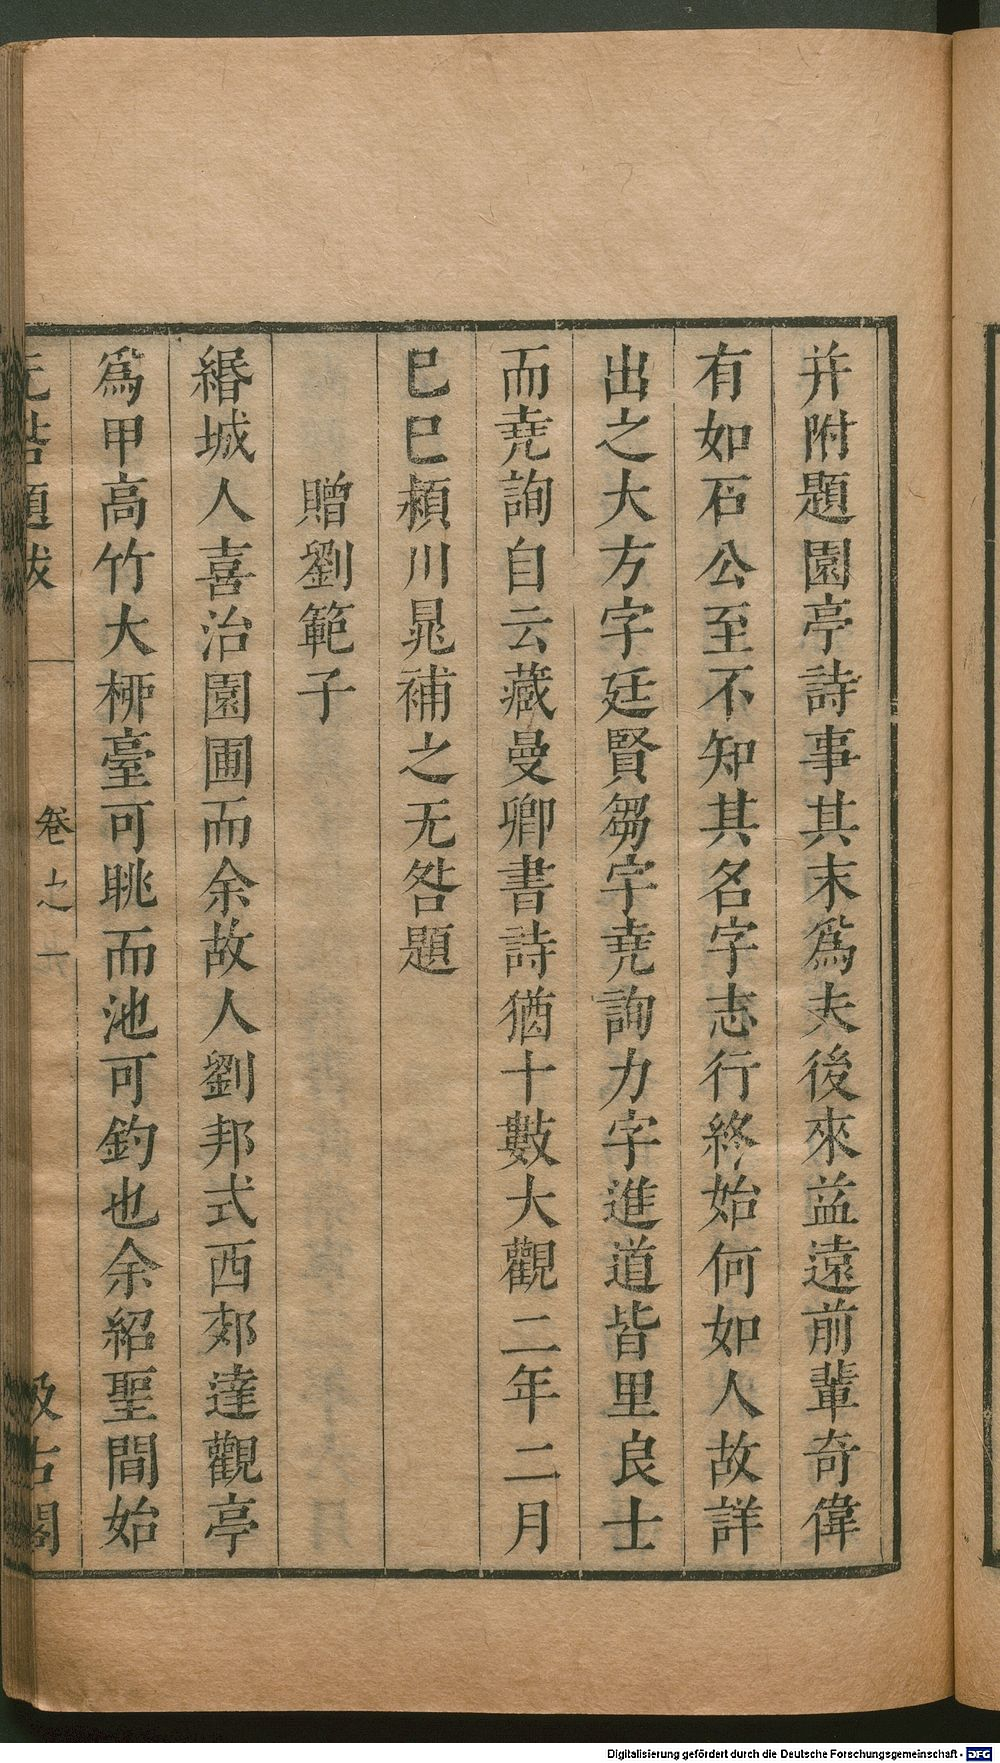 并附題園亭詩事其末爲夫後來益遠前輩奇偉
有如石公至不知其名字志行終始何如人故詳
出之大方字廷賢芻字堯詢力字進道皆里良士
而堯詢自云藏曼卿書詩猶十數大觀二年二月
已巳潁川晁補之无咎題
贈劉範子
緡城人喜治園圃而余故人劉邦式西郊達觀亭
爲甲高竹大栁臺可眺而池可釣也余紹聖間始
无咎題跋
卷之一
汲古閣
Digitalisierung gefördert durch die Deutsche Forschungsgemeinschaft - DFG